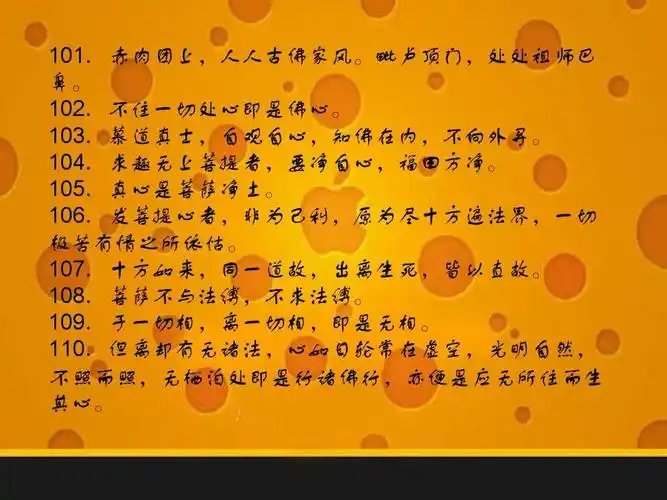 101. 赤肉团上，人人古佛家风。毗卢顶门，处处祖师巴
鼻。
102. 不住一切处心即是佛心。
103. 慕道真士，自观自心，知佛在内，不向外寻。
104. 求趣无上菩提者，要净自心，福田方净。
105. 真心是菩萨净土。
106. 发菩提心者，非为己利，原为尽十方遍法界，一切
极苦有情之所依怙。
107. 十方如来，同一道故，出离生死，皆以直故。
108. 菩萨不与法缚，不求法缚。
109. 于一切相，离一切相，即是无相。
110. 但离却有无诸法，心如日轮常在虚空，光明自然，
不照而照，无栖泊处即是行诸佛行，亦便是应无所住而生
其心。